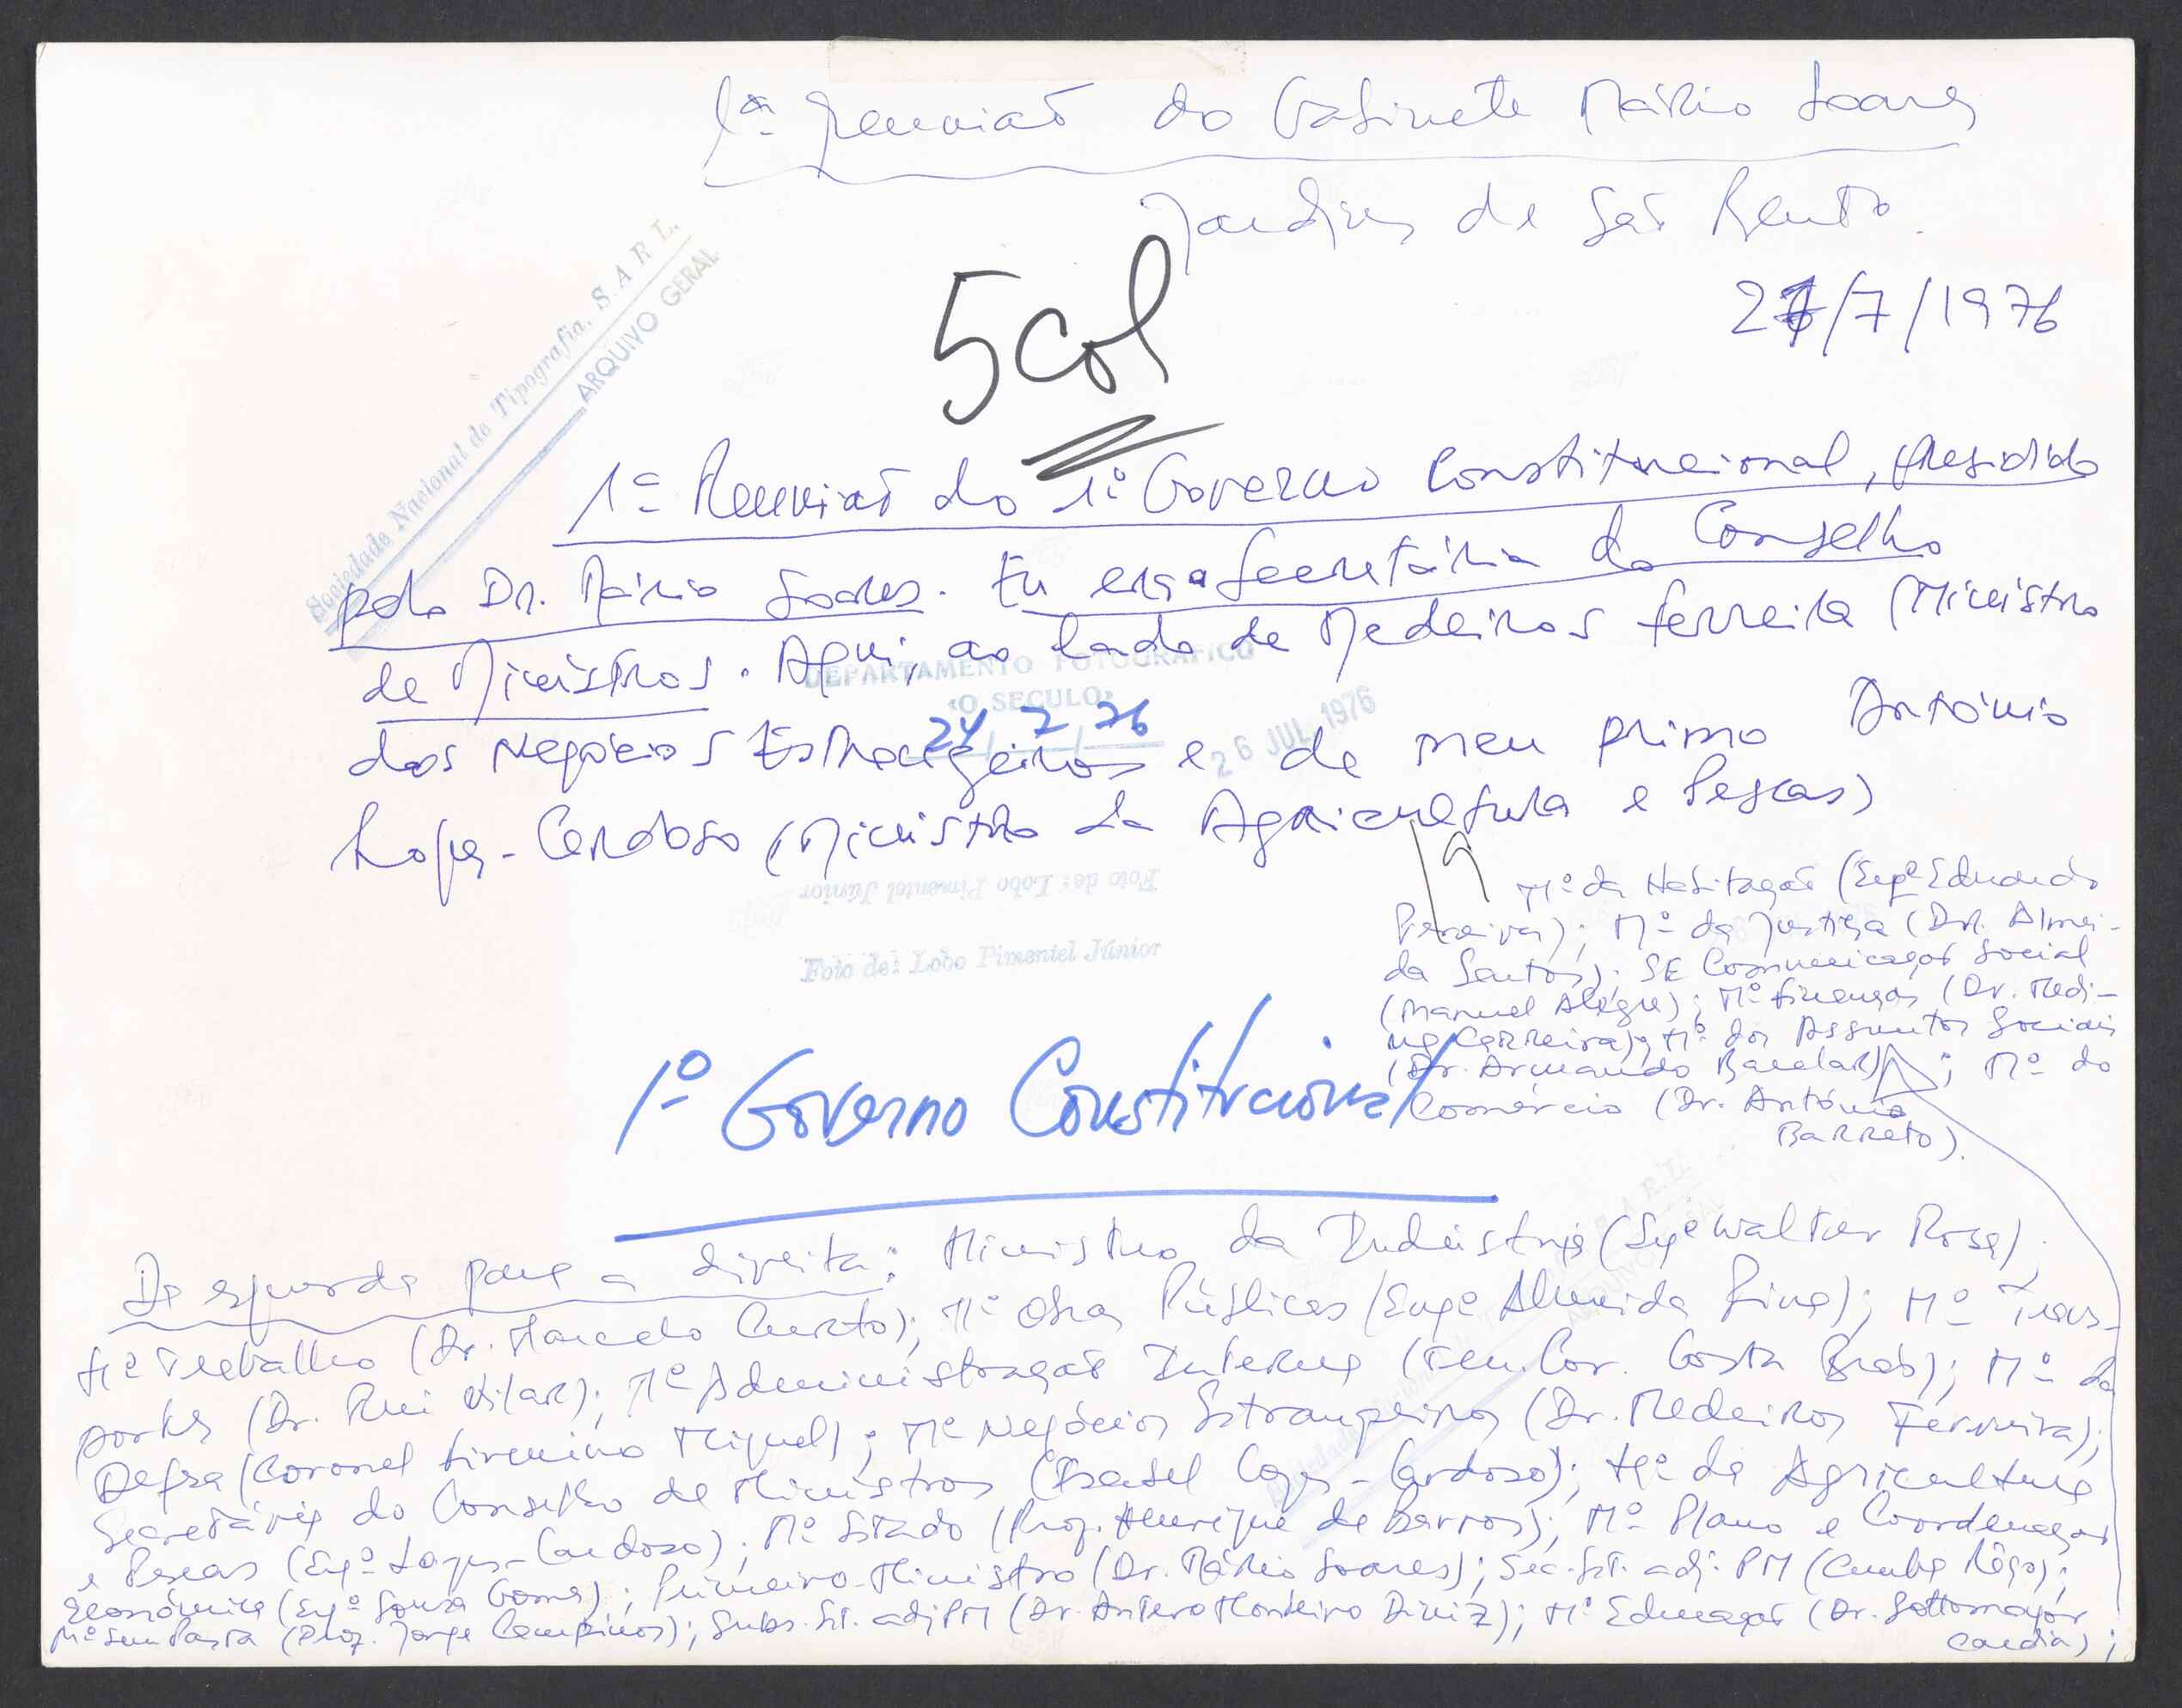 1ª Reunião do Gabinete Mário Soares
Jardins de São Bento.
27/7/1976
Sociedade Nacional de Tipografia, S.A.R.L.
ARQUIVO GERAL
5 col
1ª Reunião do 1º Governo Constitucional, presidido
pelo Dr. Mário Soares. Eu era a Secretária do Conselho
de Ministros. Aqui, ao lado de Medeiros Ferreira (Ministro
DEPARTAMENTO FOTOGRÁFICO
«O SECULO»
24/7/76
26 JUL. 1976
dos Negócios Estrangeiros e de meu primo António
Lopes-Cardoso (Ministro da Agricultura e Pescas)
Foto de: Lobo Pimentel Júnior
Foto de: Lobo Pimentel Júnior
Mº da Habitação (Engº Eduardo
Pereira); Mº da Justiça (Dr. Almei-
da Santos); SE Comunicação Social
(Manuel Alegre); Mº Finanças (Dr. Medi-
na Carreira); Mº dos Assuntos Sociais
(Dr. Armando Bacelar); Mº do
Comércio (Dr. António
Barreto).
1º Governo Constitucional
Da esquerda para a direita: Ministro da Indústria (Engº Walter Rosa);
Mº Trabalho (Dr. Marcelo Curto); Mº Obras Públicas (Engº Almeida Pina); Mº Trans-
portes (Dr. Rui Vilar); Mº Administração Interna (Ten. Cor. Costa Brás); Mº da
Defesa (Coronel Firmino Miguel); Mº Negócios Estrangeiros (Dr. Medeiros Ferreira);
Secretária do Conselho de Ministros (Isabel Lopes-Cardoso); Mº da Agricultura
e Pescas (Engº Lopes-Cardoso); Mº Estado (Prof. Henrique de Barros); Mº Plano e Coordenação
Económica (Engº Sousa Gomes); Primeiro-Ministro (Dr. Mário Soares); Sec. Est. adj. PM (Cunha Rêgo);
Mº sem Pasta (Prof. Jorge Campinos); Subs. Est. adj PM (Dr. Antero Monteiro Diniz); Mº Educação (Dr. Sottomayor
Cardia);